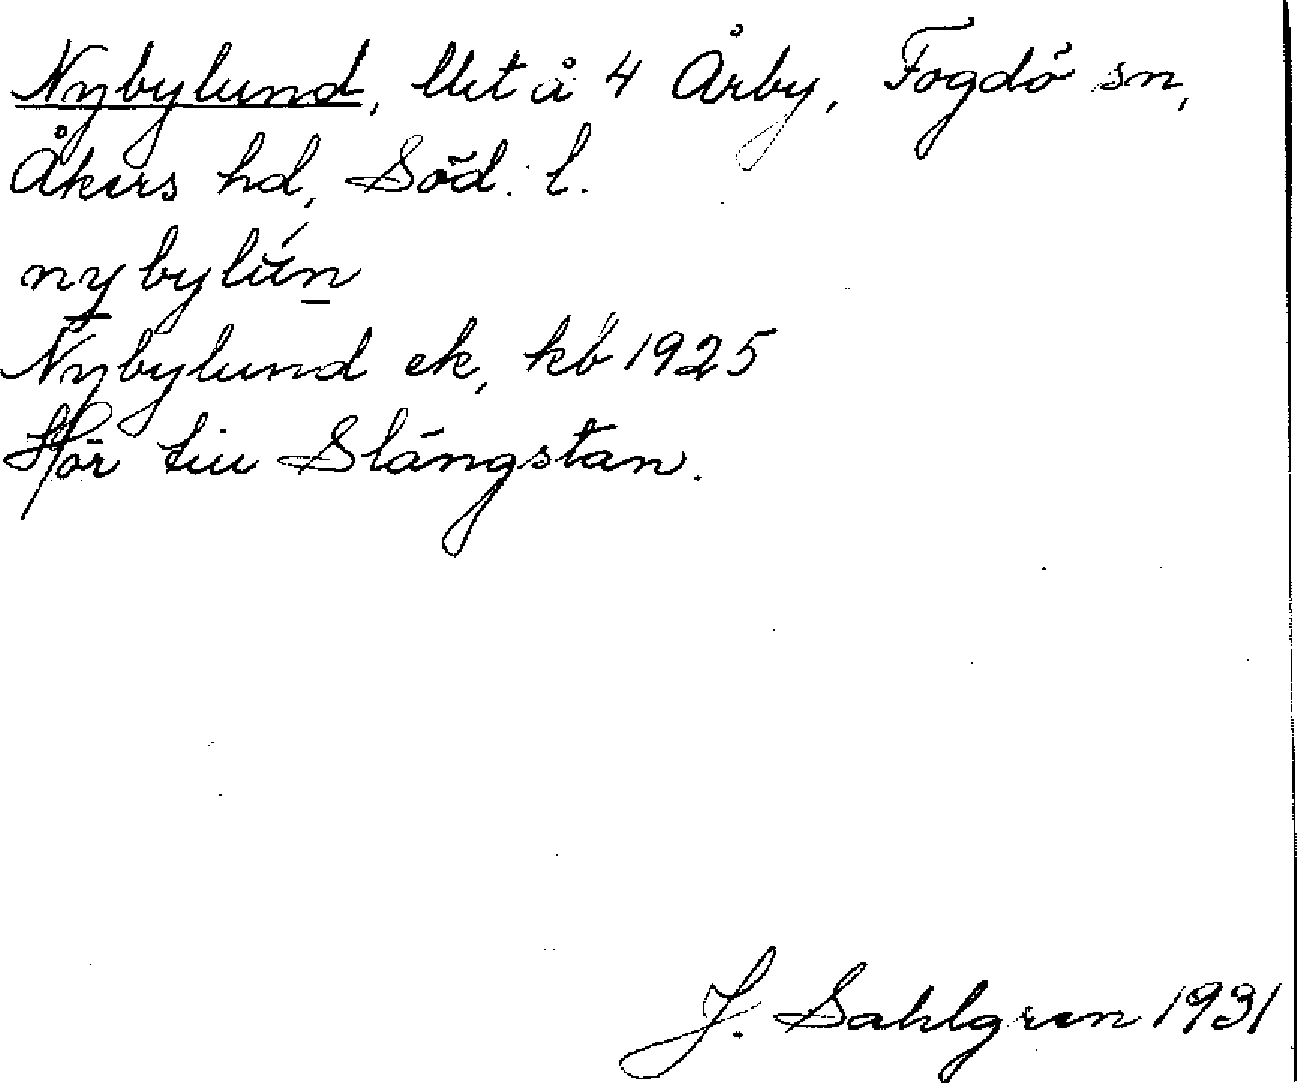 Nybylund, lht å 4 Årby, Fogdö sn,
Åkers hd, Söd. l.
nybylún
Nybylund ek, kb 1925
Hör till Slängstan.
J. Sahlgren 1931